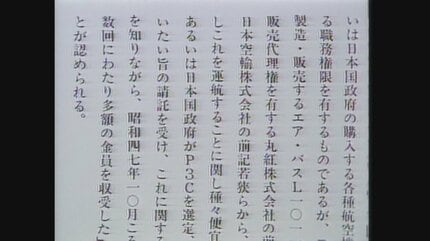 いは日本国政府の購入する各種航空
る職務権限を有するものであるが、
製造・販売するエア・バスL一〇一
販売代理権を有する丸紅株式会社の
日本空輸株式会社の前記若狭らから、
しこれを運航することに関し種々便宜
あるいは日本国政府がP3Cを選定、
いたい旨の請託を受け、これに関する
を知りながら、昭和四七年一〇月ころ
数回にわたり多額の金員を収受した
とが認められる。